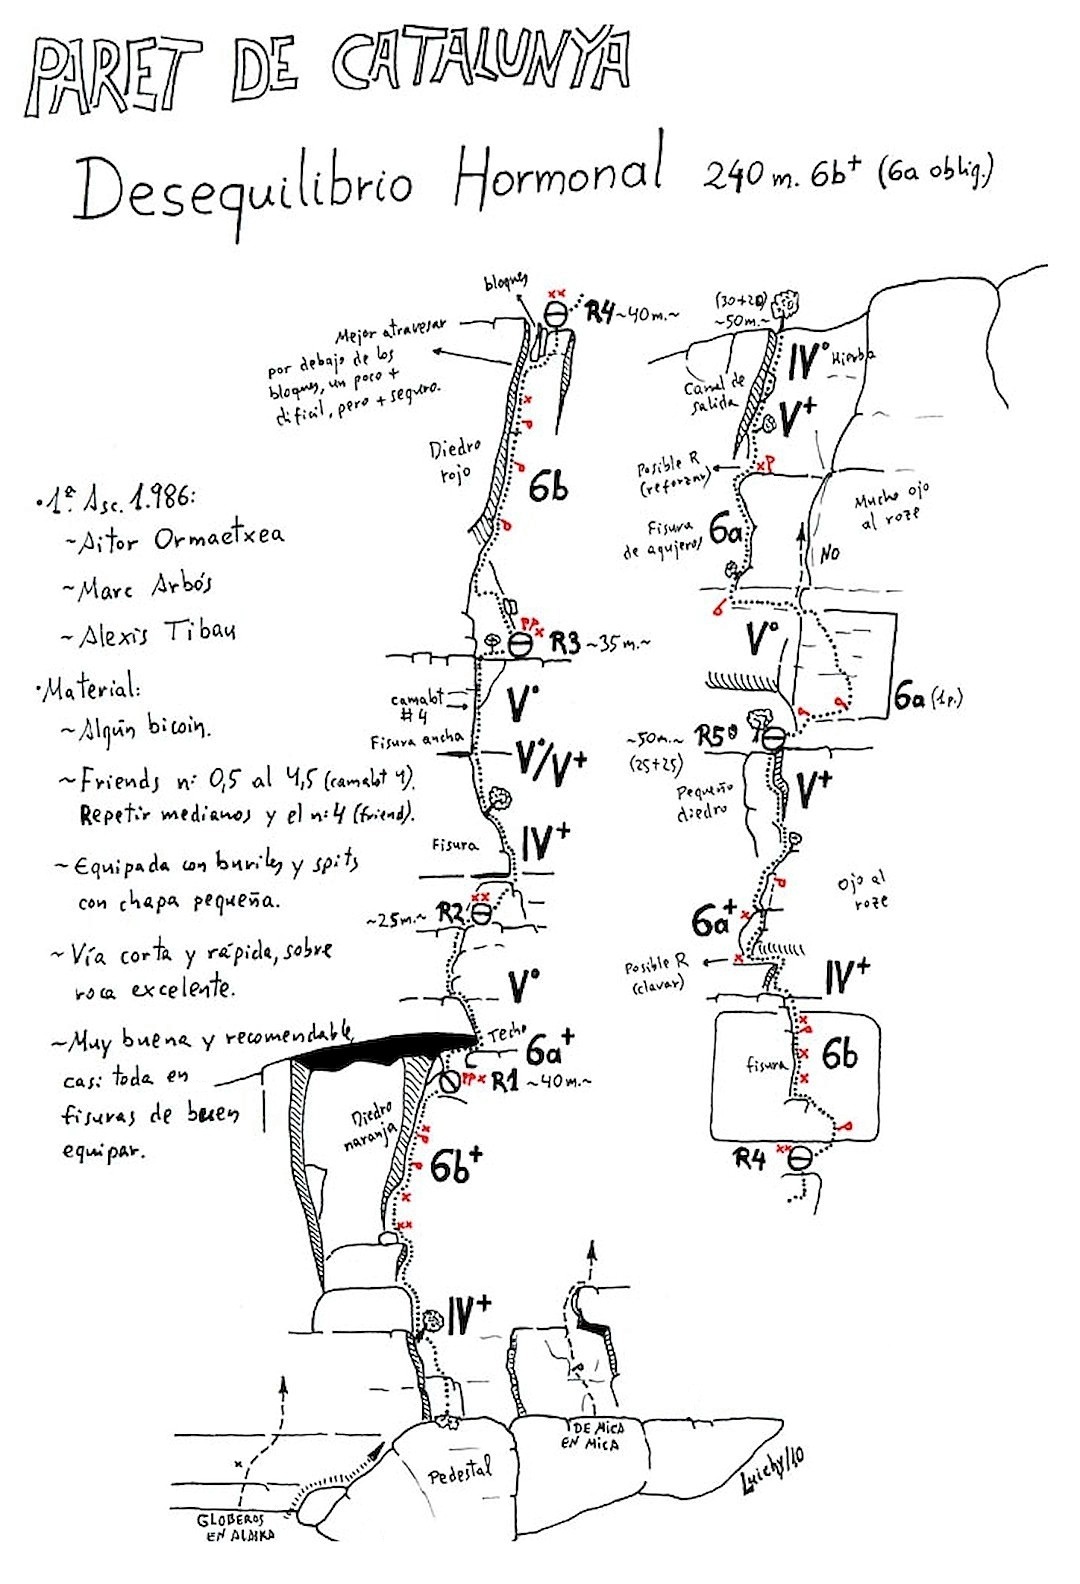 PARET DE CATALUNYA
Desequilibrio Hormonal 240 m. 6b+ (6a oblig.)
bloques
R4 ~40m.~
Mejor atravesar
por debajo de los
bloques, un poco +
dificil, pero + seguro.
Diedro
rojo
6b
R3 ~35m.~
V°
camalot
#4
Fisura ancha
V°/V+
Fisura
IV+
~25m.~ R2
V°
Techo
6a+
R1 ~40m.~
Diedro
naranja
6b+
IV+
Pedestal
DE MICA
EN MICA
GLOBEROS
EN ALASKA
Luichy/10
·1ª Asc. 1.986:
~Aitor Ormaetxea
~Marc Arbós
~Alexis Tibau
·Material:
~Algún bicoin.
~Friends nº: 0,5 al 4,5 (camalot 4).
Repetir medianos y el nº4 (friend).
~Equipada con buriles y spits
con chapa pequeña.
~Vía corta y rápida, sobre
roca excelente.
~Muy buena y recomendable,
casi toda en
fisuras de buen
equipar.
(30+20)
~50m.~
IV° Hierba
Canal de
salida
V+
Posible R
(reforzar)
Mucho ojo
al roze
Fisura
de agujeros
6a
No
V°
6a (1p.)
~50m.~ R5º
(25+25)
Pequeño
diedro
V+
Ojo al
roze
6a+
Posible R
(clavar)
IV+
fisura
6b
R4